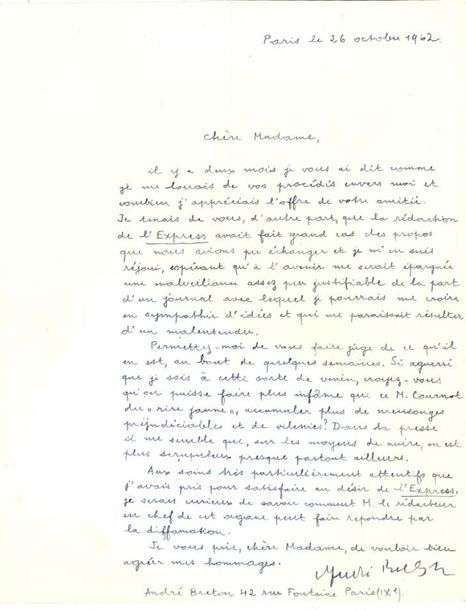 Paris le 26 octobre 1962.
Chère Madame,
il y a deux mois je vous ai dit comme
je me louais de vos procédés envers moi et
combien j'appréciais l'offre de votre amitié.
Je tenais de vous, d'autre part, que la rédaction
de l'Express avait fait grand cas des propos
que nous avions pu échanger et je m'en suis
réjoui, espérant qu'à l'avenir me serait épargnée
une malveillance assez peu justifiable de la part
d'un journal avec lequel je pourrais me croire
en sympathie d'idées et qui me paraissait résulter
d'un malentendu.
Permettez-moi de vous faire juge de ce qu'il
en est, au bout de quelques semaines. Si aguerri
que je sois à cette sorte de venin, croyez-vous
qu'on puisse faire plus infâme que ce M. Cournot
du « rire jaune », accumuler plus de mensonges
préjudiciables et de vilenies? Dans la presse
il me semble que, sur les moyens de nuire, on est
plus scrupuleux presque partout ailleurs.
Aux soins très particulièrement attentifs que
j'avais pris pour satisfaire au désir de l'Express,
je serais curieux de savoir comment M. le rédacteur
en chef de cet organe peut faire répondre par
la diffamation.
Je vous prie, chère Madame, de vouloir bien
agréer mes hommages.
André Breton
André Breton 42 rue Fontaine Paris (IXe)